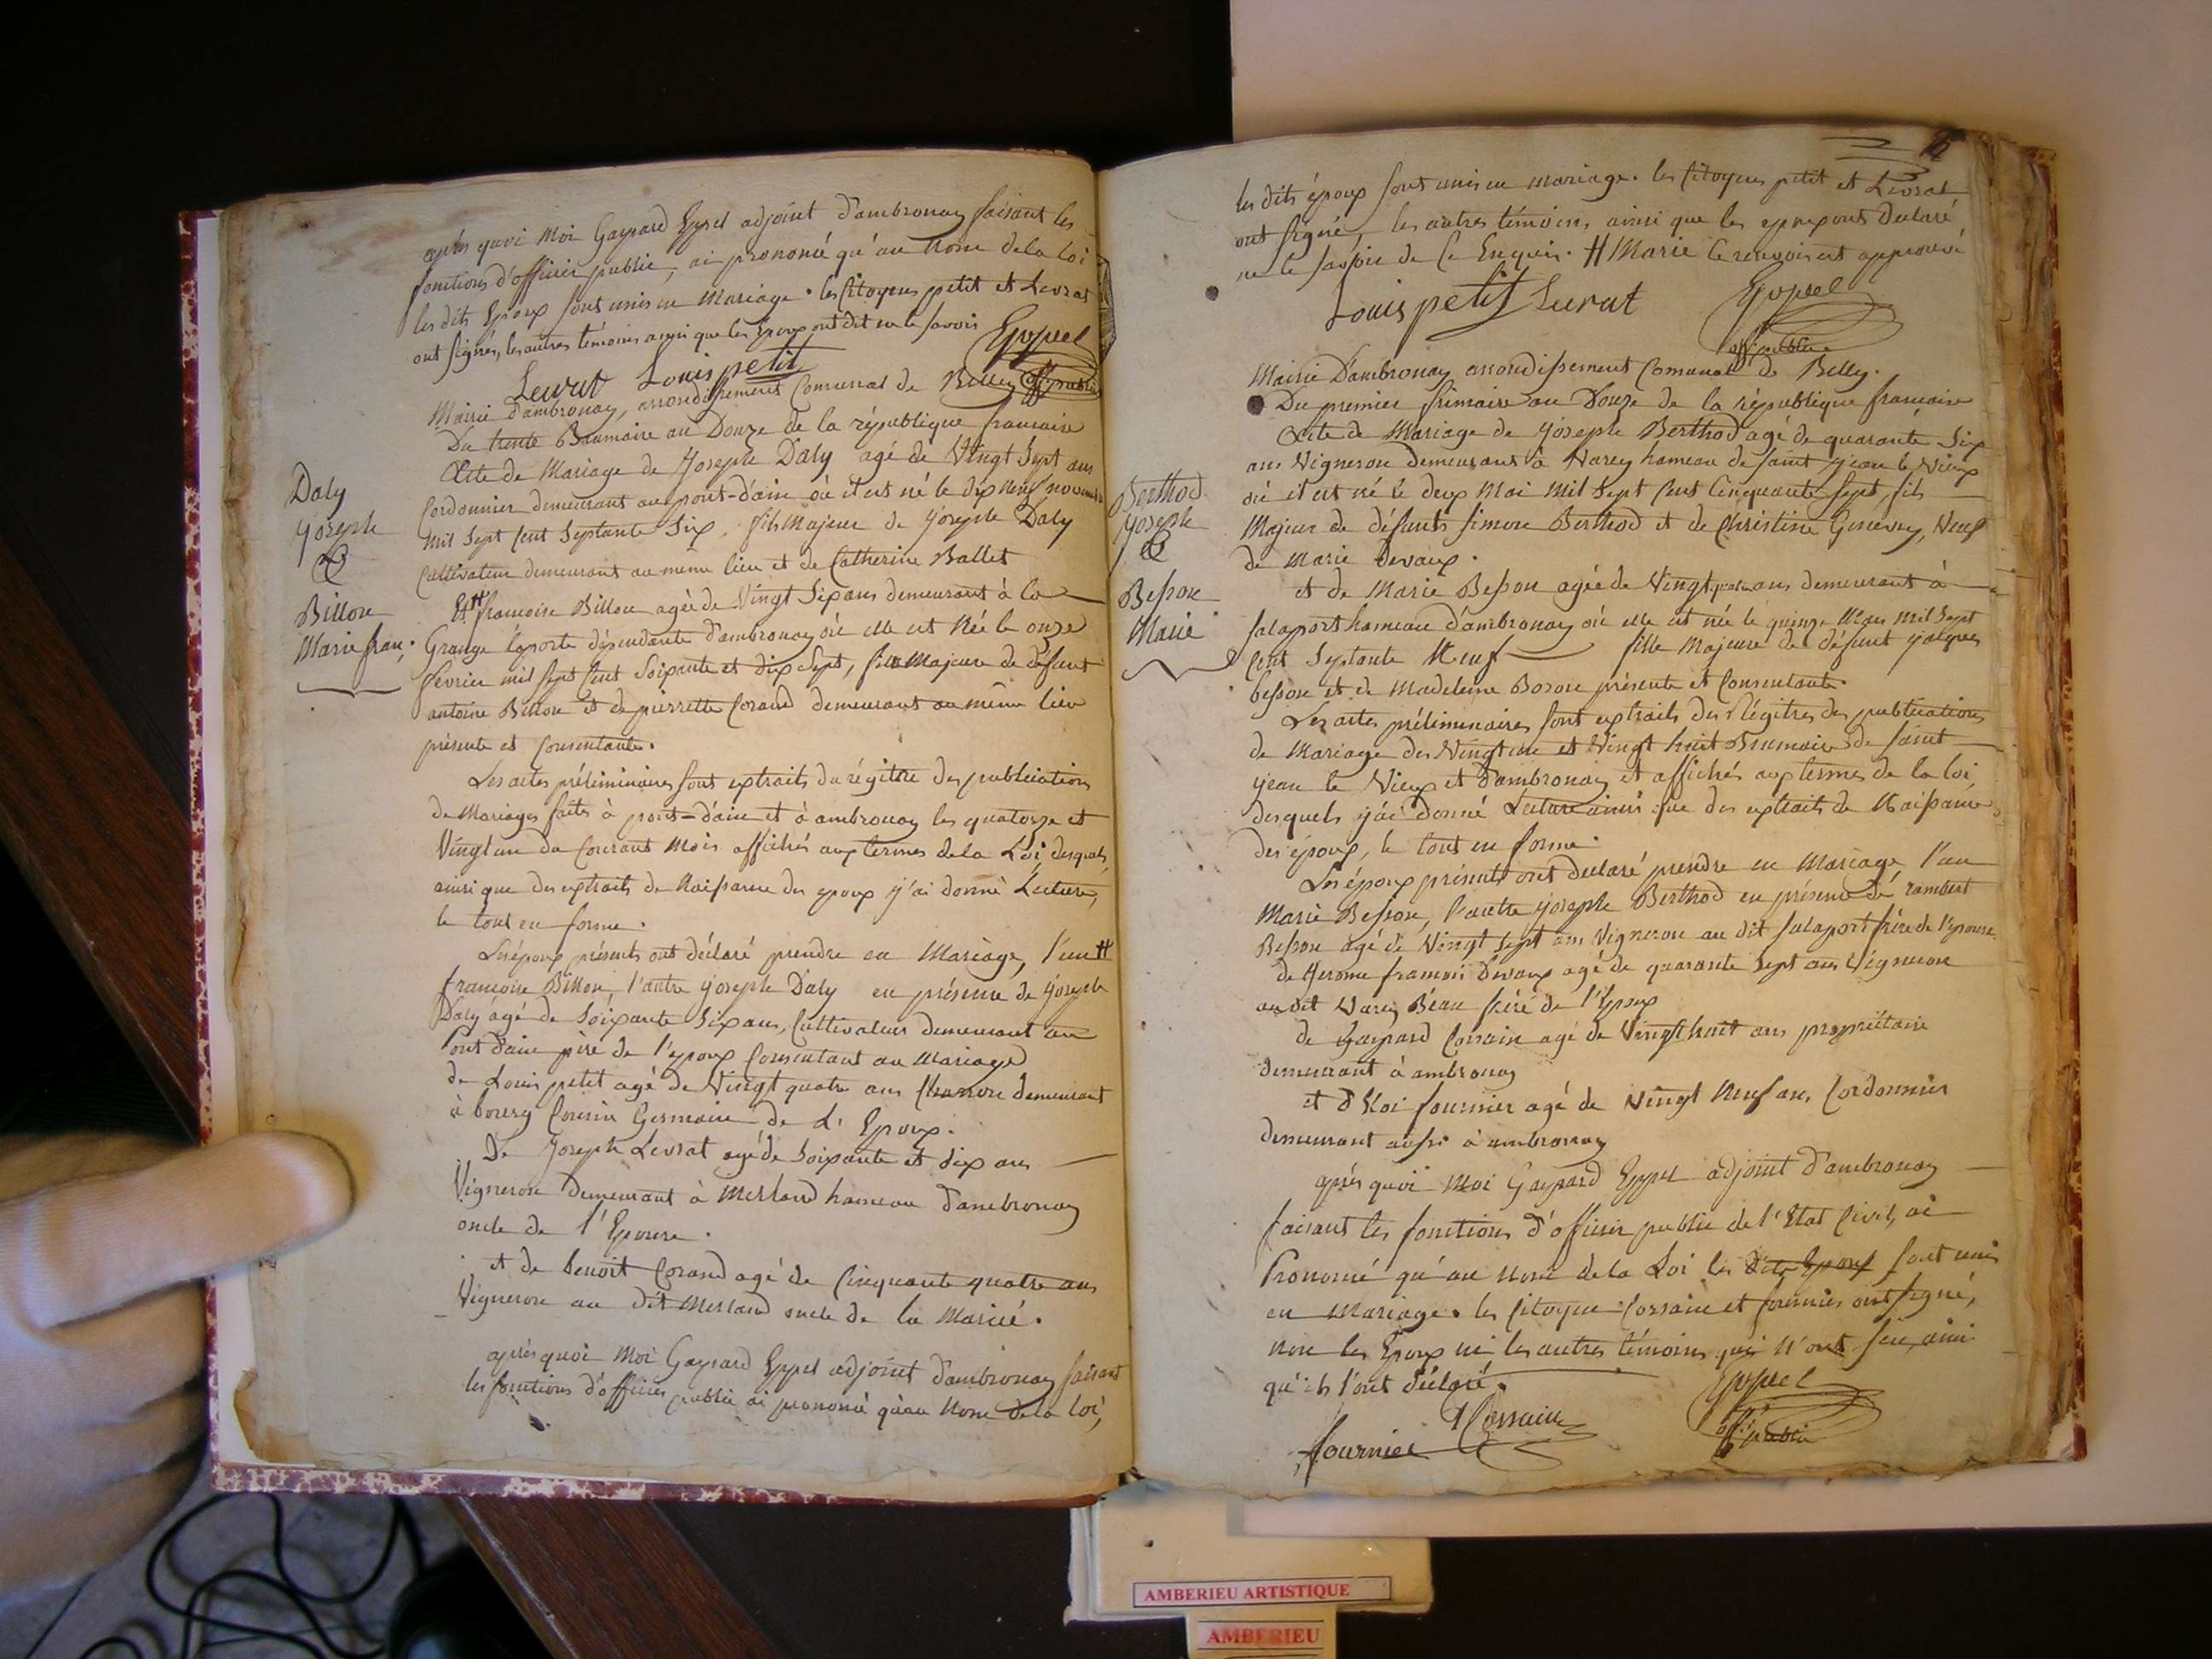 après quoi Moi Gaspard Eppel adjoint d'ambronay faisant les
fonctions d'officier public, ai prononcé qu'au Nom de la Loi
les dits Epoux sont unis en Mariage. les Citoyens petit et Levrat
ont signés, les autres témoins ainsi que les Epoux ont dit ne le savoir
Levrat Louis petit Eppel
off. public
Mairie d'ambronay, arrondissement Comunal de Belley
Du trente Brumaire an Douze de la république francaise
Acte de Mariage de Joseph Daly agé de Vingt Sept ans
Cordonnier demeurant au pont-d'ain où il est né le dix neuf novembre
mil Sept Cent Septante Six, fils Majeur de Joseph Daly
Cultivateur demeurant au même lieu et de Catherine Ballet
Et # francoise Billon agée de Vingt Six ans demeurant à la
Grange laporte dépendante d'ambronay où elle est Née le onze
février mil sept Cent Soixante et dix Sept, fille Majeure de défunt
antoine Billon et de pierrette Corand demeurant au même lieu
présente et Consentante.
Les actes préliminaires sont extraits du régitre des publication
de Mariages faites à pont-d'ain et à ambronay les quatorze et
Vingt un du Courant Mois affichés aux termes de la Loi, desquels
ainsi que des extraits de Naissance des epoux j'ai donné Lecture,
le tout en forme.
Les époux présents ont déclaré prendre en Mariage, l'un #
francoise Billon, l'autre Joseph Daly en présence de Joseph
Daly agé de Soixante Six ans, Cultivateur demeurant au
Pont d'ain père de l'epoux Consentant au Mariage
de Louis petit agé de Vingt quatre ans demeurant
à bourg Cousin Germain de L'Epoux.
De Joseph Levrat agé de Soixante et dix ans
Vigneron demeurant à Merland hameau d'ambronay
oncle de l'Epouse.
et de benoit Corand agé de Cinquante quatre ans
Vigneron au dit Merland oncle de la Mariée.
après quoi Moi Gaspard Eppel adjoint d'ambronay faisant
les fonctions d'officier public ai prononcé qu'au Nom de la loi,
Daly
Joseph
&
Billon
Marie fran.
les dits époux sont unis en mariage. les Citoyens petit et Levrat
ont signé, les autres témoins, ainsi que les epoux ont declaré
ne le savoir de Ce Enquis. # Marie le renvoi est approuvé
Louis petit Levrat Eppel
off. public
Mairie D'ambronay arrondissement Comunal de Belley.
Du premier frimaire an Douze de la république francaise
Acte de Mariage de Joseph Berthod agé de quarante Six
ans Vigneron demeurant à Varey hameau de saint Jean le Vieux
où il est né le deux Mai Mil Sept Cent Cinquante Sept, fils
Majeur de défunts Simon Berthod et de Christine Genevrey, Veuf
de Marie Devaux.
et de Marie Besson agée de Vingt quatre ans demeurant à
salaport hameau d'ambronay où elle est née le quinze Mars mil Sept
Cent Septante Neuf fille Majeure de défunt jacques
besson et de Madeleine Bozon présente et Consentante.
Les actes préliminaires sont extraits des Régitres des publications
de Mariage des Vingt un et Vingt huit Brumaire de saint
jean le Vieux et d'ambronay et affichés aux termes de la loi
desquels j'ai donné Lecture ainsi que des extraits de Naissance
des époux, le tout en forme.
Les époux présents ont declaré prendre en Mariage, l'un
Marie Besson, l'autre Joseph Berthod en présence de rambert
Besson agé de Vingt Sept ans Vigneron au dit salaport frère de l'épouse
de Jerome francois Devaux agé de quarante Sept ans Vigneron
au dit Varey Beau frère de l'Epoux
de Gaspard Corsain agé de Vingt huit ans propriétaire
demeurant à ambronay
et d'Eloi fournier agé de Vingt Neuf ans, Cordonnier
demeurant aussi à ambronay
après quoi Moi Gaspard Eppel adjoint d'ambronay
faisant les fonctions d'officier public de l'Etat Civil, ai
Prononcé qu'au Nom de la Loi les dits Epoux sont unis
en Mariage. les Citoyens Corsain et fournier ont signé,
non les Epoux ni les autres témoins qui N'ont sçu, ainsi
qu'ils l'ont déclaré.
Corsain Eppel
fournier off. public
Berthod
Joseph
&
Besson
Marie
AMBERIEU ARTISTIQUE
AMBERIEU